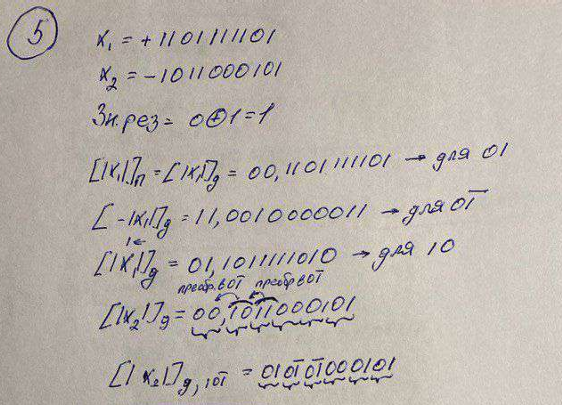 5
X₁ = +1101111101
X₂ = -1011000101
Зн.рез = 0⊕1=1
[|X₁|]п = [|X₁|]g = 00,1101111101 → для 01
[-|X₁|]g = 11,0010000011 → для 01̅
1←
[|X₁|]g = 01,1011111010 → для 10
преобр.в 01̅ преобр в 01̅
[|X₂|]g = 00,1011000101
[|X₂|]g,101̅ = 0101̅01̅000101